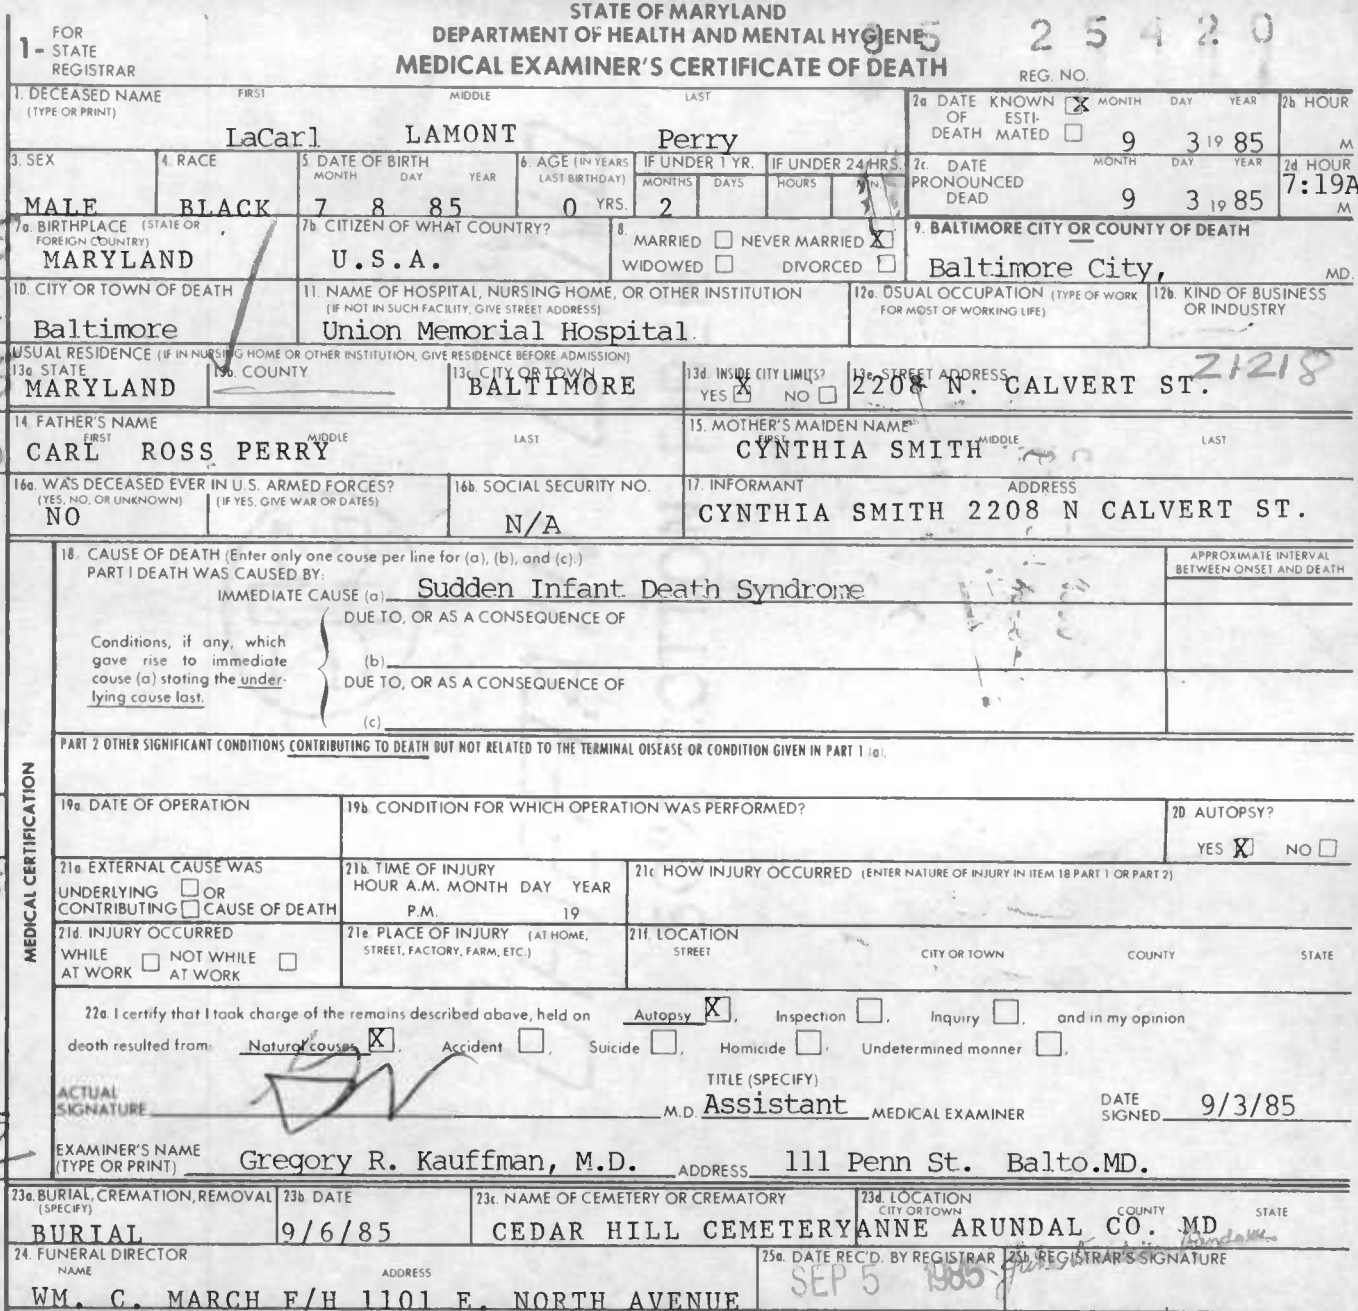 STATE OF MARYLAND
DEPARTMENT OF HEALTH AND MENTAL HYGIENE
MEDICAL EXAMINER'S CERTIFICATE OF DEATH
1- FOR STATE REGISTRAR
85 25420
REG. NO.
1. DECEASED NAME (TYPE OR PRINT) FIRST MIDDLE LAST
LaCarl LAMONT Perry
2a DATE OF DEATH KNOWN X ESTIMATED MONTH DAY YEAR
9 3 19 85
2b HOUR M
3. SEX
MALE
4. RACE
BLACK
5. DATE OF BIRTH MONTH DAY YEAR
7 8 85
6. AGE (IN YEARS LAST BIRTHDAY)
0 YRS.
IF UNDER 1 YR. MONTHS DAYS
2
IF UNDER 24 HRS. HOURS MIN.
2c. DATE PRONOUNCED DEAD MONTH DAY YEAR
9 3 19 85
2d HOUR
7:19A M
7a. BIRTHPLACE (STATE OR FOREIGN COUNTRY)
MARYLAND
7b CITIZEN OF WHAT COUNTRY?
U.S.A.
8. MARRIED NEVER MARRIED X
WIDOWED DIVORCED
9. BALTIMORE CITY OR COUNTY OF DEATH
Baltimore City, MD.
10. CITY OR TOWN OF DEATH
Baltimore
11. NAME OF HOSPITAL, NURSING HOME, OR OTHER INSTITUTION
(IF NOT IN SUCH FACILITY, GIVE STREET ADDRESS)
Union Memorial Hospital
12a. USUAL OCCUPATION (TYPE OF WORK FOR MOST OF WORKING LIFE)
12b. KIND OF BUSINESS OR INDUSTRY
USUAL RESIDENCE (IF IN NURSING HOME OR OTHER INSTITUTION, GIVE RESIDENCE BEFORE ADMISSION)
13a STATE
MARYLAND
13b. COUNTY
13c. CITY OR TOWN
BALTIMORE
13d. INSIDE CITY LIMITS?
YES X NO
13e. STREET ADDRESS
2208 N. CALVERT ST. 21218
14. FATHER'S NAME FIRST MIDDLE LAST
CARL ROSS PERRY
15. MOTHER'S MAIDEN NAME FIRST MIDDLE LAST
CYNTHIA SMITH
16a. WAS DECEASED EVER IN U.S. ARMED FORCES?
(YES, NO, OR UNKNOWN) (IF YES, GIVE WAR OR DATES)
NO
16b. SOCIAL SECURITY NO.
N/A
17. INFORMANT ADDRESS
CYNTHIA SMITH 2208 N CALVERT ST.
MEDICAL CERTIFICATION
18. CAUSE OF DEATH (Enter only one cause per line for (a), (b), and (c).)
PART I DEATH WAS CAUSED BY:
IMMEDIATE CAUSE (a) Sudden Infant Death Syndrome
APPROXIMATE INTERVAL BETWEEN ONSET AND DEATH
DUE TO, OR AS A CONSEQUENCE OF
Conditions, if any, which
gave rise to immediate
cause (a) stating the under-
lying cause last.
(b)
DUE TO, OR AS A CONSEQUENCE OF
(c)
PART 2 OTHER SIGNIFICANT CONDITIONS CONTRIBUTING TO DEATH BUT NOT RELATED TO THE TERMINAL DISEASE OR CONDITION GIVEN IN PART 1 (a).
19a DATE OF OPERATION
19b CONDITION FOR WHICH OPERATION WAS PERFORMED?
20 AUTOPSY?
YES X NO
21a EXTERNAL CAUSE WAS
UNDERLYING OR
CONTRIBUTING CAUSE OF DEATH
21b. TIME OF INJURY
HOUR A.M. MONTH DAY YEAR
P.M. 19
21c HOW INJURY OCCURRED (ENTER NATURE OF INJURY IN ITEM 18 PART 1 OR PART 2)
21d. INJURY OCCURRED
WHILE AT WORK NOT WHILE AT WORK
21e. PLACE OF INJURY (AT HOME, STREET, FACTORY, FARM, ETC.)
21f. LOCATION
STREET CITY OR TOWN COUNTY STATE
22a. I certify that I took charge of the remains described above, held on Autopsy X, Inspection , Inquiry , and in my opinion
death resulted from: Natural causes X, Accident , Suicide , Homicide , Undetermined manner .
ACTUAL SIGNATURE M.D.
TITLE (SPECIFY)
Assistant MEDICAL EXAMINER
DATE SIGNED 9/3/85
EXAMINER'S NAME (TYPE OR PRINT) Gregory R. Kauffman, M.D. ADDRESS 111 Penn St. Balto.MD.
23a. BURIAL, CREMATION, REMOVAL (SPECIFY)
BURIAL
23b DATE
9/6/85
23c. NAME OF CEMETERY OR CREMATORY
CEDAR HILL CEMETERY
23d. LOCATION CITY OR TOWN COUNTY STATE
ANNE ARUNDAL CO. MD
24. FUNERAL DIRECTOR
NAME ADDRESS
WM. C. MARCH F/H 1101 E. NORTH AVENUE
25a. DATE REC'D. BY REGISTRAR
SEP 5 1985
25b. REGISTRAR'S SIGNATURE